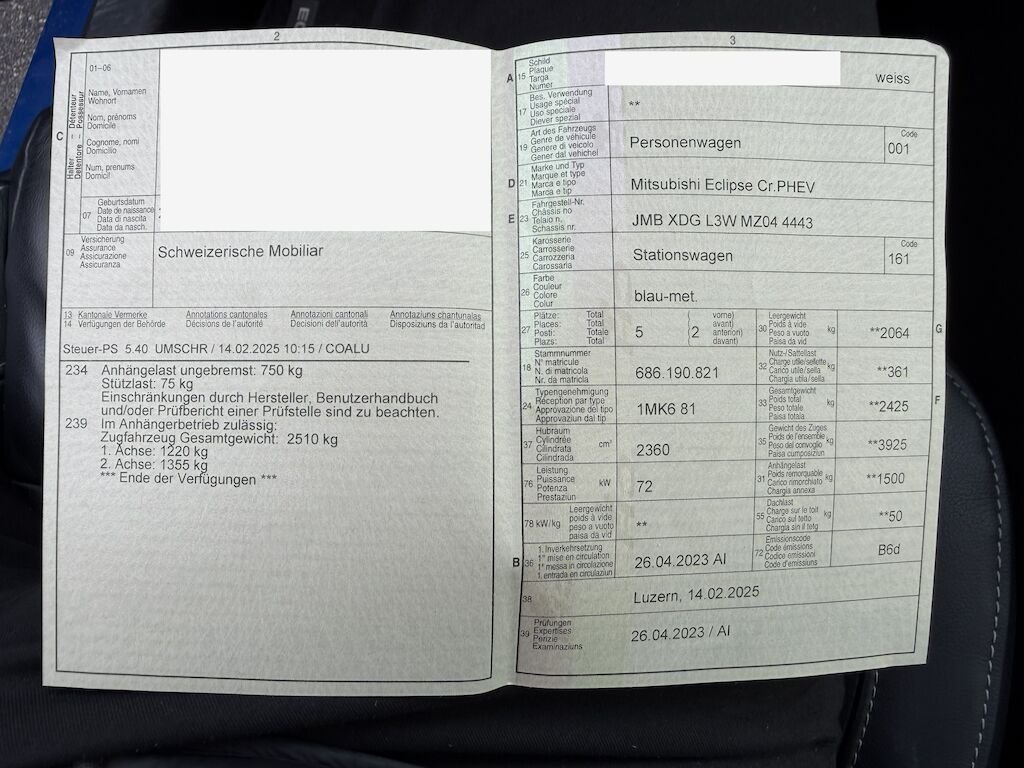 2
01–06
Name, Vornamen
Wohnort
Nom, prénoms
Domicile
Cognome, nomi
Domicilio
Num, prenums
Domicil
C
Halter – Détenteur
Detentore – Possessur
07
Geburtsdatum
Date de naissance
Data di nascita
Data da nasch.
09
Versicherung
Assurance
Assicurazione
Assicuranza
Schweizerische Mobiliar
13 Kantonale Vermerke Annotations cantonales Annotazioni cantonali Annotaziuns chantunalas
14 Verfügungen der Behörde Décisions de l'autorité Decisioni dell'autorità Disposiziuns da l'autoritad
Steuer-PS 5.40 UMSCHR / 14.02.2025 10:15 / COALU
234 Anhängelast ungebremst: 750 kg
Stützlast: 75 kg
Einschränkungen durch Hersteller, Benutzerhandbuch
und/oder Prüfbericht einer Prüfstelle sind zu beachten.
239 Im Anhängerbetrieb zulässig:
Zugfahrzeug Gesamtgewicht: 2510 kg
1. Achse: 1220 kg
2. Achse: 1355 kg
*** Ende der Verfügungen ***
3
A 15
Schild
Plaque
Targa
Numer
weiss
17
Bes. Verwendung
Usage spécial
Uso speciale
Diever spezial
**
19
Art des Fahrzeugs
Genre de véhicule
Genere di veicolo
Gener dal vehichel
Personenwagen
Code
001
D 21
Marke und Typ
Marque et type
Marca e tipo
Marca e tip
Mitsubishi Eclipse Cr.PHEV
E 23
Fahrgestell-Nr.
Châssis no
Telaio n.
Schassis nr.
JMB XDG L3W MZ04 4443
25
Karosserie
Carrosserie
Carrozzeria
Carossaria
Stationswagen
Code
161
26
Farbe
Couleur
Colore
Colur
blau-met.
27
Plätze: Total
Places: Total
Posti: Totale
Plazs: Total
5
(2
vorne)
avant)
anteriori)
davant)
30
Leergewicht
Poids à vide
Peso a vuoto
Paisa da vid
kg
**2064
G
18
Stammnummer
N° matricule
N. di matricola
Nr. da matricla
686.190.821
32
Nutz-/Sattellast
Charge utile/sellette
Carico utile/sella
Chargia utila/sella
kg
**361
24
Typengenehmigung
Réception par type
Approvazione del tipo
Approvaziun dal tip
1MK6 81
33
Gesamtgewicht
Poids total
Peso totale
Paisa totala
kg
**2425
F
37
Hubraum
Cylindrée
Cilindrata
Cilindrada
cm³
2360
35
Gewicht des Zuges
Poids de l'ensemble
Peso del convoglio
Paisa cumposiziun
kg
**3925
76
Leistung
Puissance
Potenza
Prestaziun
kW
72
31
Anhängelast
Poids remorquable
Carico rimorchiato
Chargia annexa
kg
**1500
78 kW/kg
Leergewicht
poids à vide
peso a vuoto
paisa da vid
**
55
Dachlast
Charge sur le toit
Carico sul tetto
Chargia sin il tetg
kg
**50
B 36
1. Inverkehrsetzung
1re mise en circulation
1a messa in circolazione
1. entrada en circulaziun
26.04.2023 AI
72
Emissionscode
Code émissions
Codice emissioni
Code d'emissiuns
B6d
38
Luzern, 14.02.2025
39
Prüfungen
Expertises
Perizie
Examinaziuns
26.04.2023 / AI